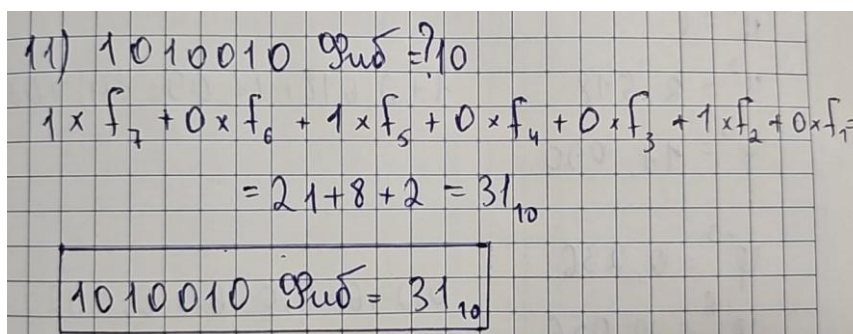 11) 1010010 Фиб =? 10
1 × f₇ + 0 × f₆ + 1 × f₅ + 0 × f₄ + 0 × f₃ + 1 × f₂ + 0 × f₁ =
= 21 + 8 + 2 = 31₁₀
1010010 Фиб = 31₁₀